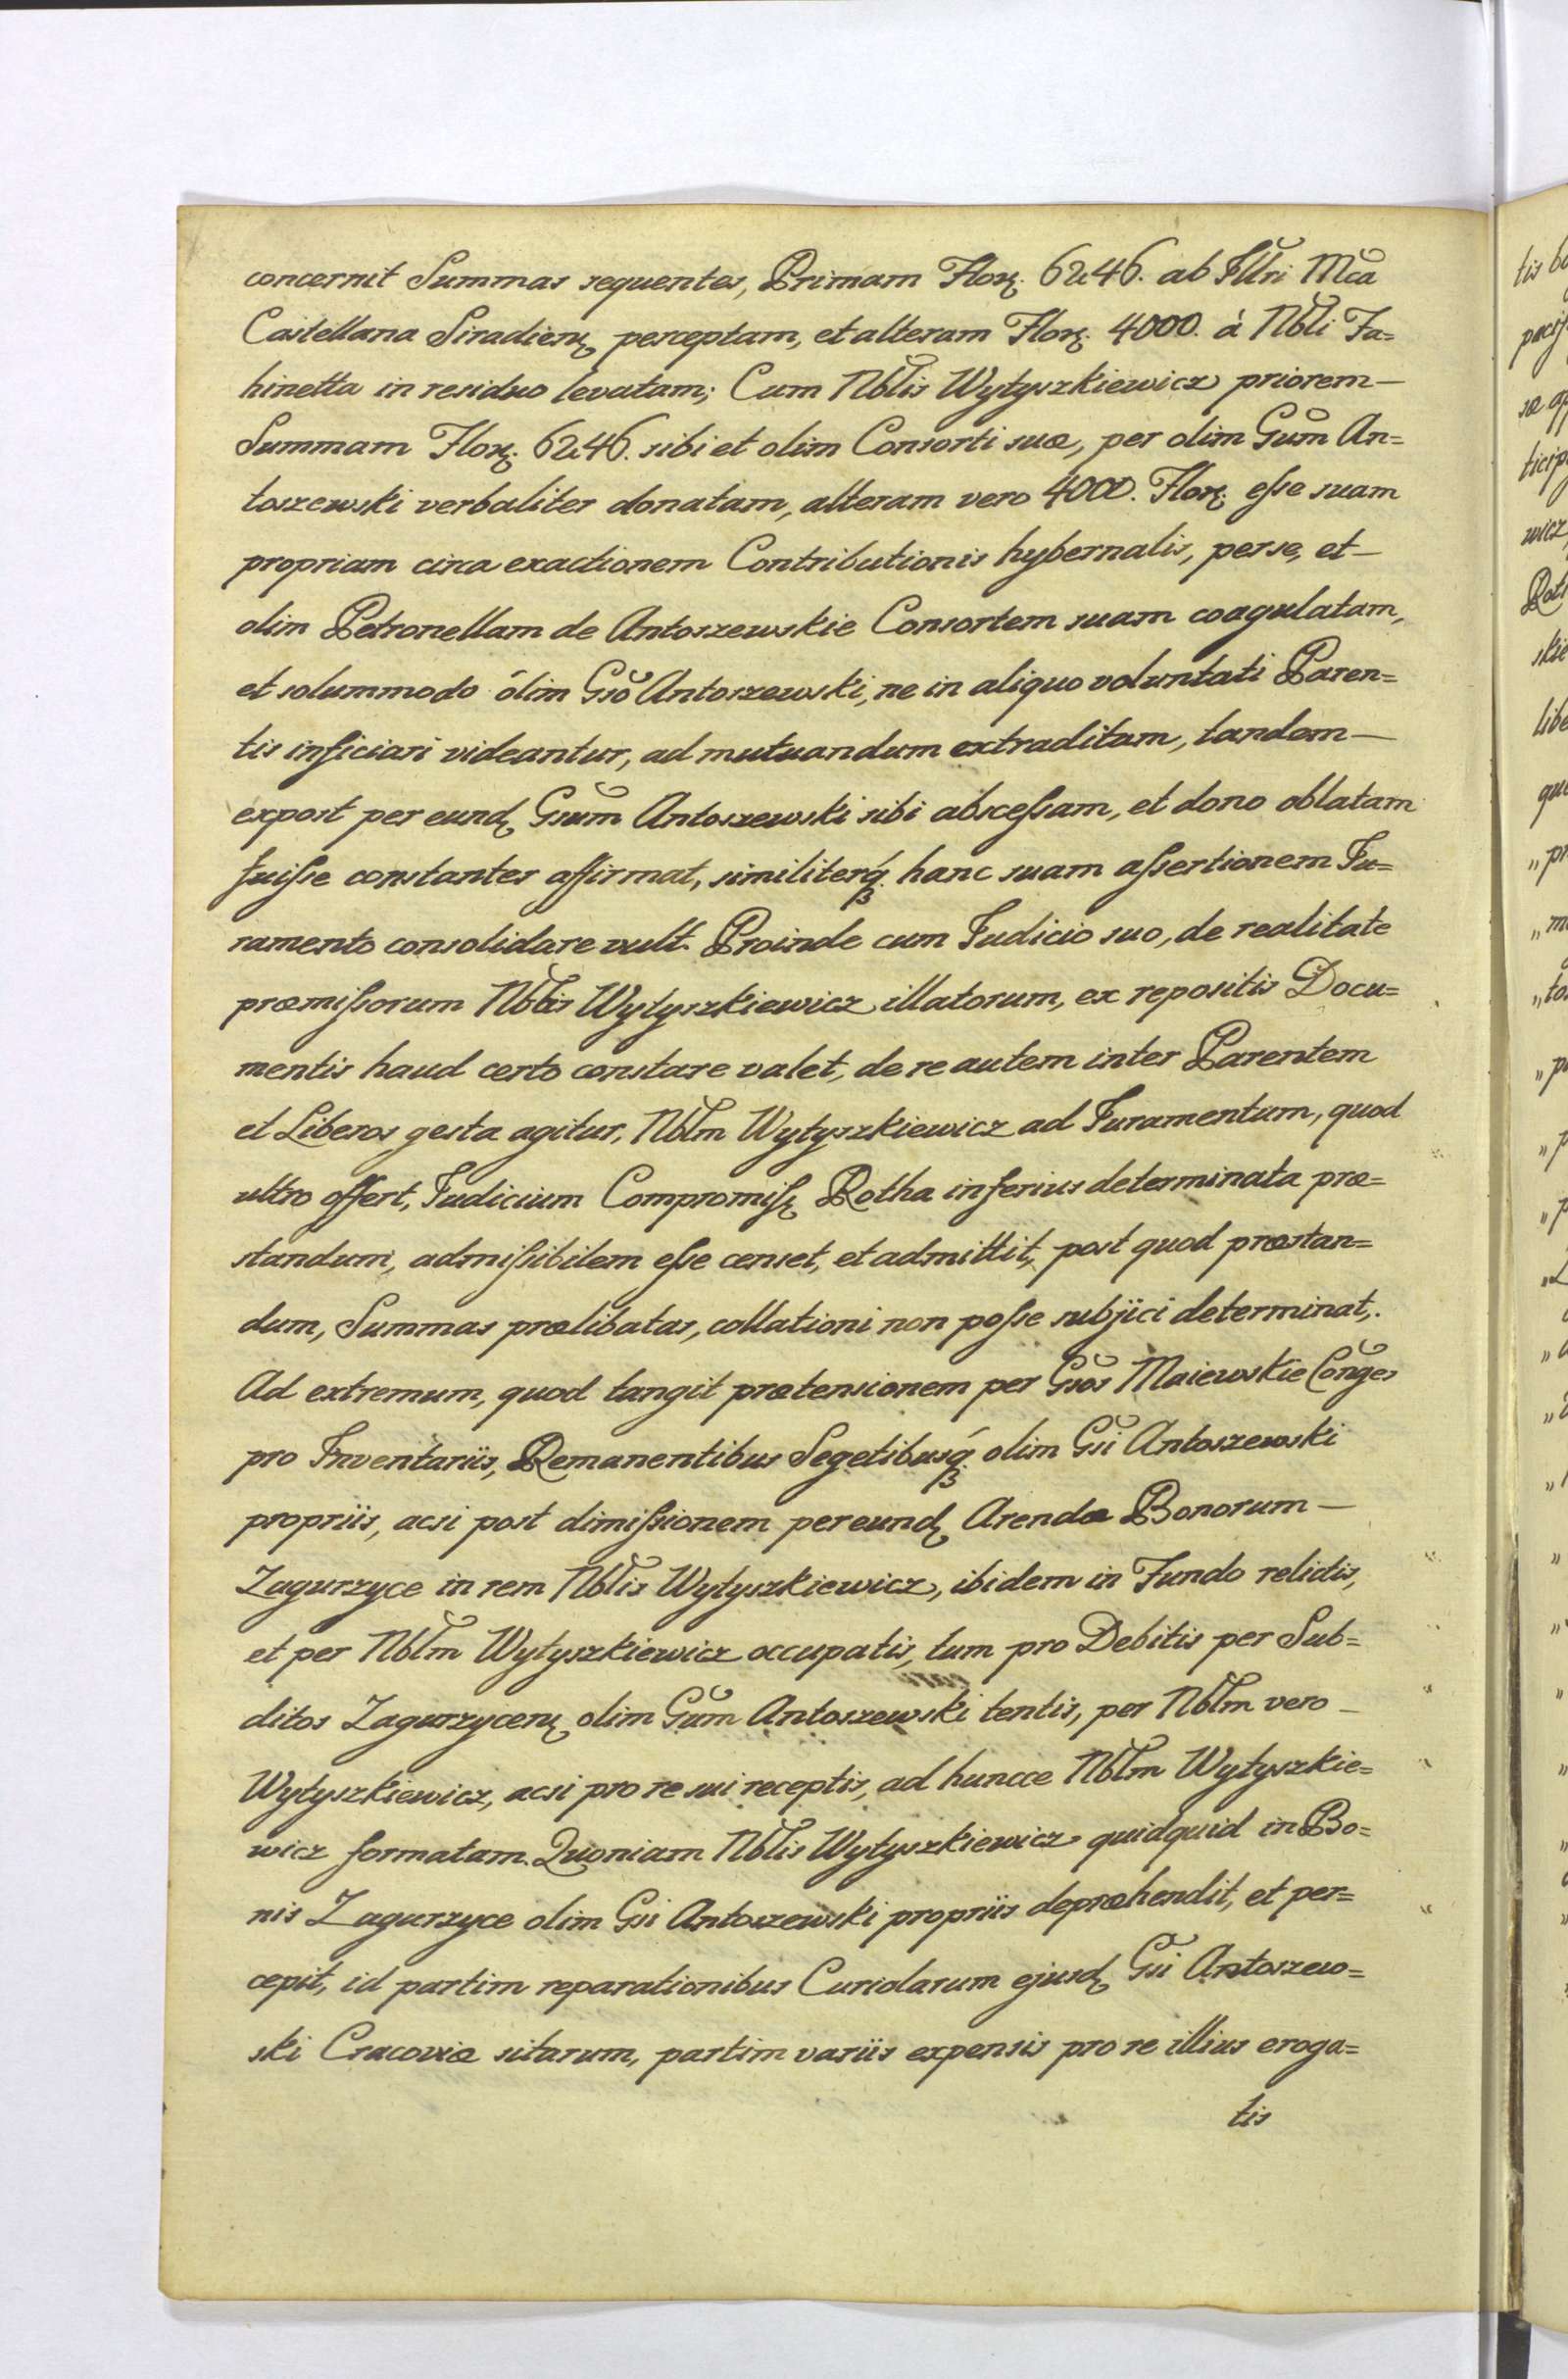 concernit Summas sequentes, Primam Flor: 6246. ab Illri Mca
Castellana Siradien: perceptam, et alteram Flor: 4000. à Nbli Ja=
hinetta in residuo levatam; Cum Nblis Wytyszkiewicz priorem—
Summam Flor: 6246. sibi et olim Consorti suæ, per olim Gsum An=
toszewski verbaliter donatam, alteram vero 4000. Flor: eſse suam
propriam circa exactionem Contributionis hybernalis, per se, et—
olim Petronellam de Antoszewskie Consortem suam coagulatam,
et solummodo ólim Gso Antoszewski, ne in aliquo voluntati Paren=
tis inficiari videantur, ad mutuandum extraditam, tandem—
expost per eund: Gsum Antoszewski sibi absceſsam, et dono oblatam
fuiſse constanter affirmat, similiterq́ꝫ hanc suam aſsertionem Ju=
ramento consolidare vult. Proinde cum Judicio suo, de realitate
præmiſsorum Nblis Wytyszkiewicz illatorum, ex repositis Docu=
mentis haud certo constare valet, de re autem inter Parentem
et Liberos gesta agitur, Nblm Wytyszkiewicz ad Juramentum, quod
ultro offert, Judicium Compromiſs: Rotha inferius determinata præ=
standum, admiſsibilem eſse censet, et admittit, post quod præstan=
dum, Summas prælibatas, collationi non poſse subjici determinat,.
Ad extremum, quod tangit prætensionem per Gsos Maiewskie Conges
pro Inventariis, Remanentibus Segetibusq́ꝫ olim Gsi Antoszewski
propriis, acsi post dimiſsionem per eund: Arendæ Bonorum—
Zagurzyce in rem Nblis Wytyszkiewicz, ibidem in Fundo relictis,
et per Nblm Wytyszkiewicz occupatis, tum pro Debitis per Sub=
ditos Zagurzycen: olim Gsum Antoszewski tentis, per Nblm vero—
Wytyszkiewicz, acsi pro re sui receptis, ad huncce Nblm Wytyszkie=
wicz formatam. Quoniam Nblis Wytyszkiewicz quidquid in Bo=
nis Zagurzyce olim Gsi Antoszewski propriis depræhendit, et per=
cepit, id partim reparationibus Curiolarum ejusd: Gsi Antoszew=
ski Cracoviæ sitarum, partim variis expensis pro re illius eroga=
tis